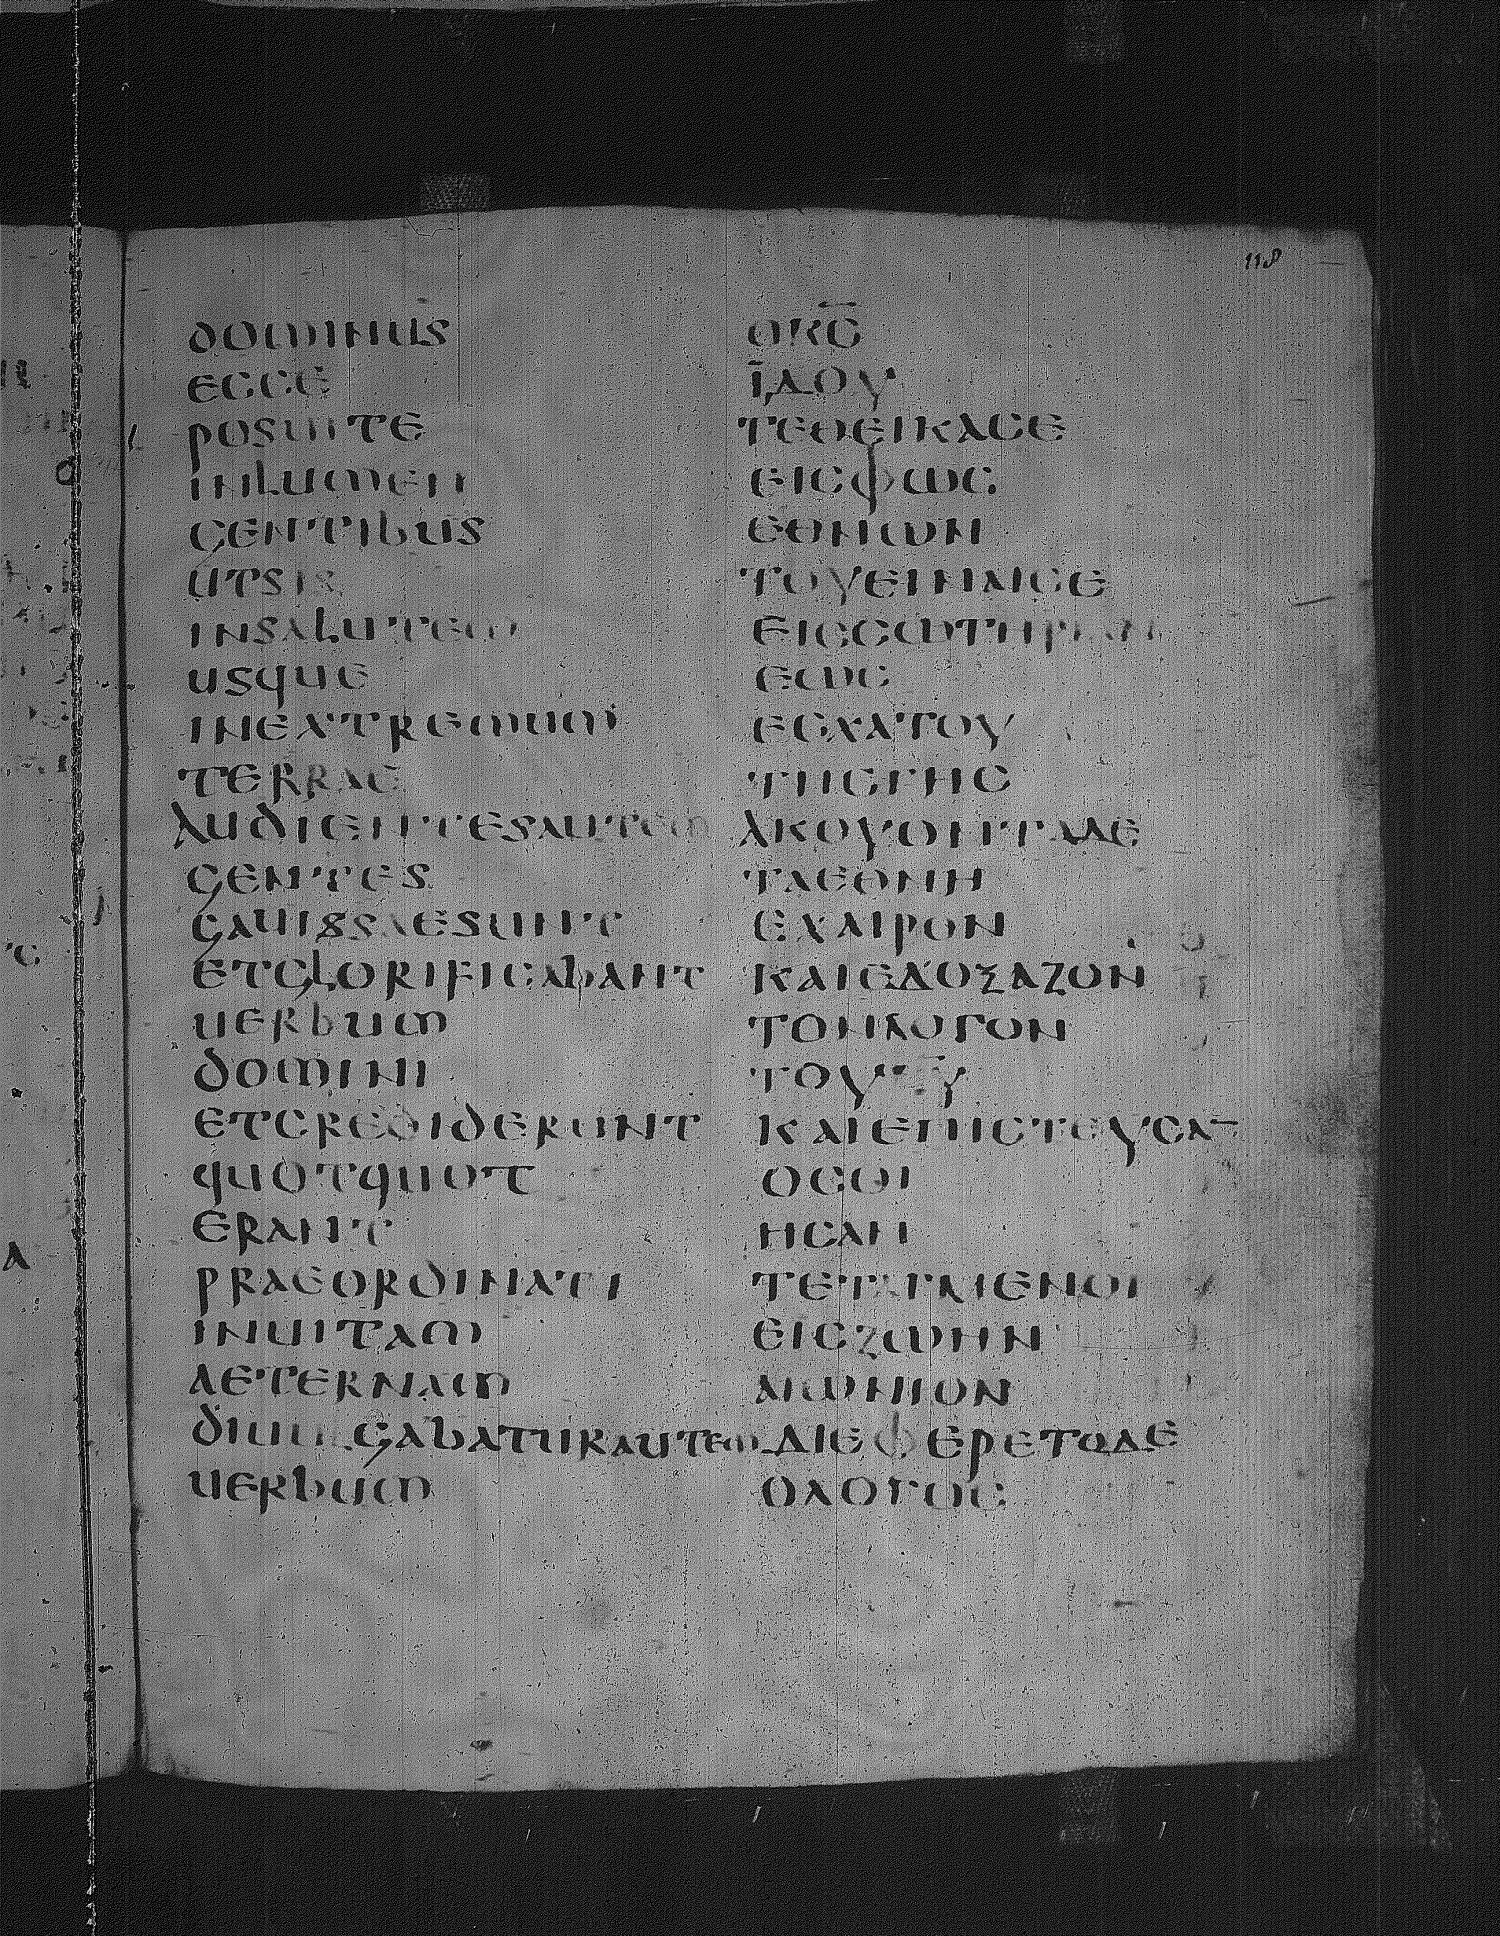 118
dominus ο κ̅ς̅
ecce ϊδου
posui te τεθεικα σε
in lumen εις φως
gentibus εθνων
ut sis του ειναι σε
in salutem εις σωτηριαν
usque εως
in extremum εσχατου
terrae της γης
audientes autem ακουοντα δε
gentes τα εθνη
gauissae sunt εχαιρον
et glorificabant και εδοξαζον
uerbum τον λογον
domini του κ̅υ̅
et crediderunt και επιστευσα̅
quotquot οσοι
erant ησαν
praeordinati τεταγμενοι
in uitam εις ζωην
aeternam αιωνιον
diuulgabatur autem διεφερετω δε
uerbum ο λογος